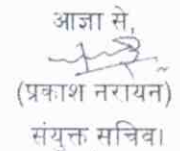 आज्ञा से,
(प्रकाश नरायन)
संयुक्त सचिव।